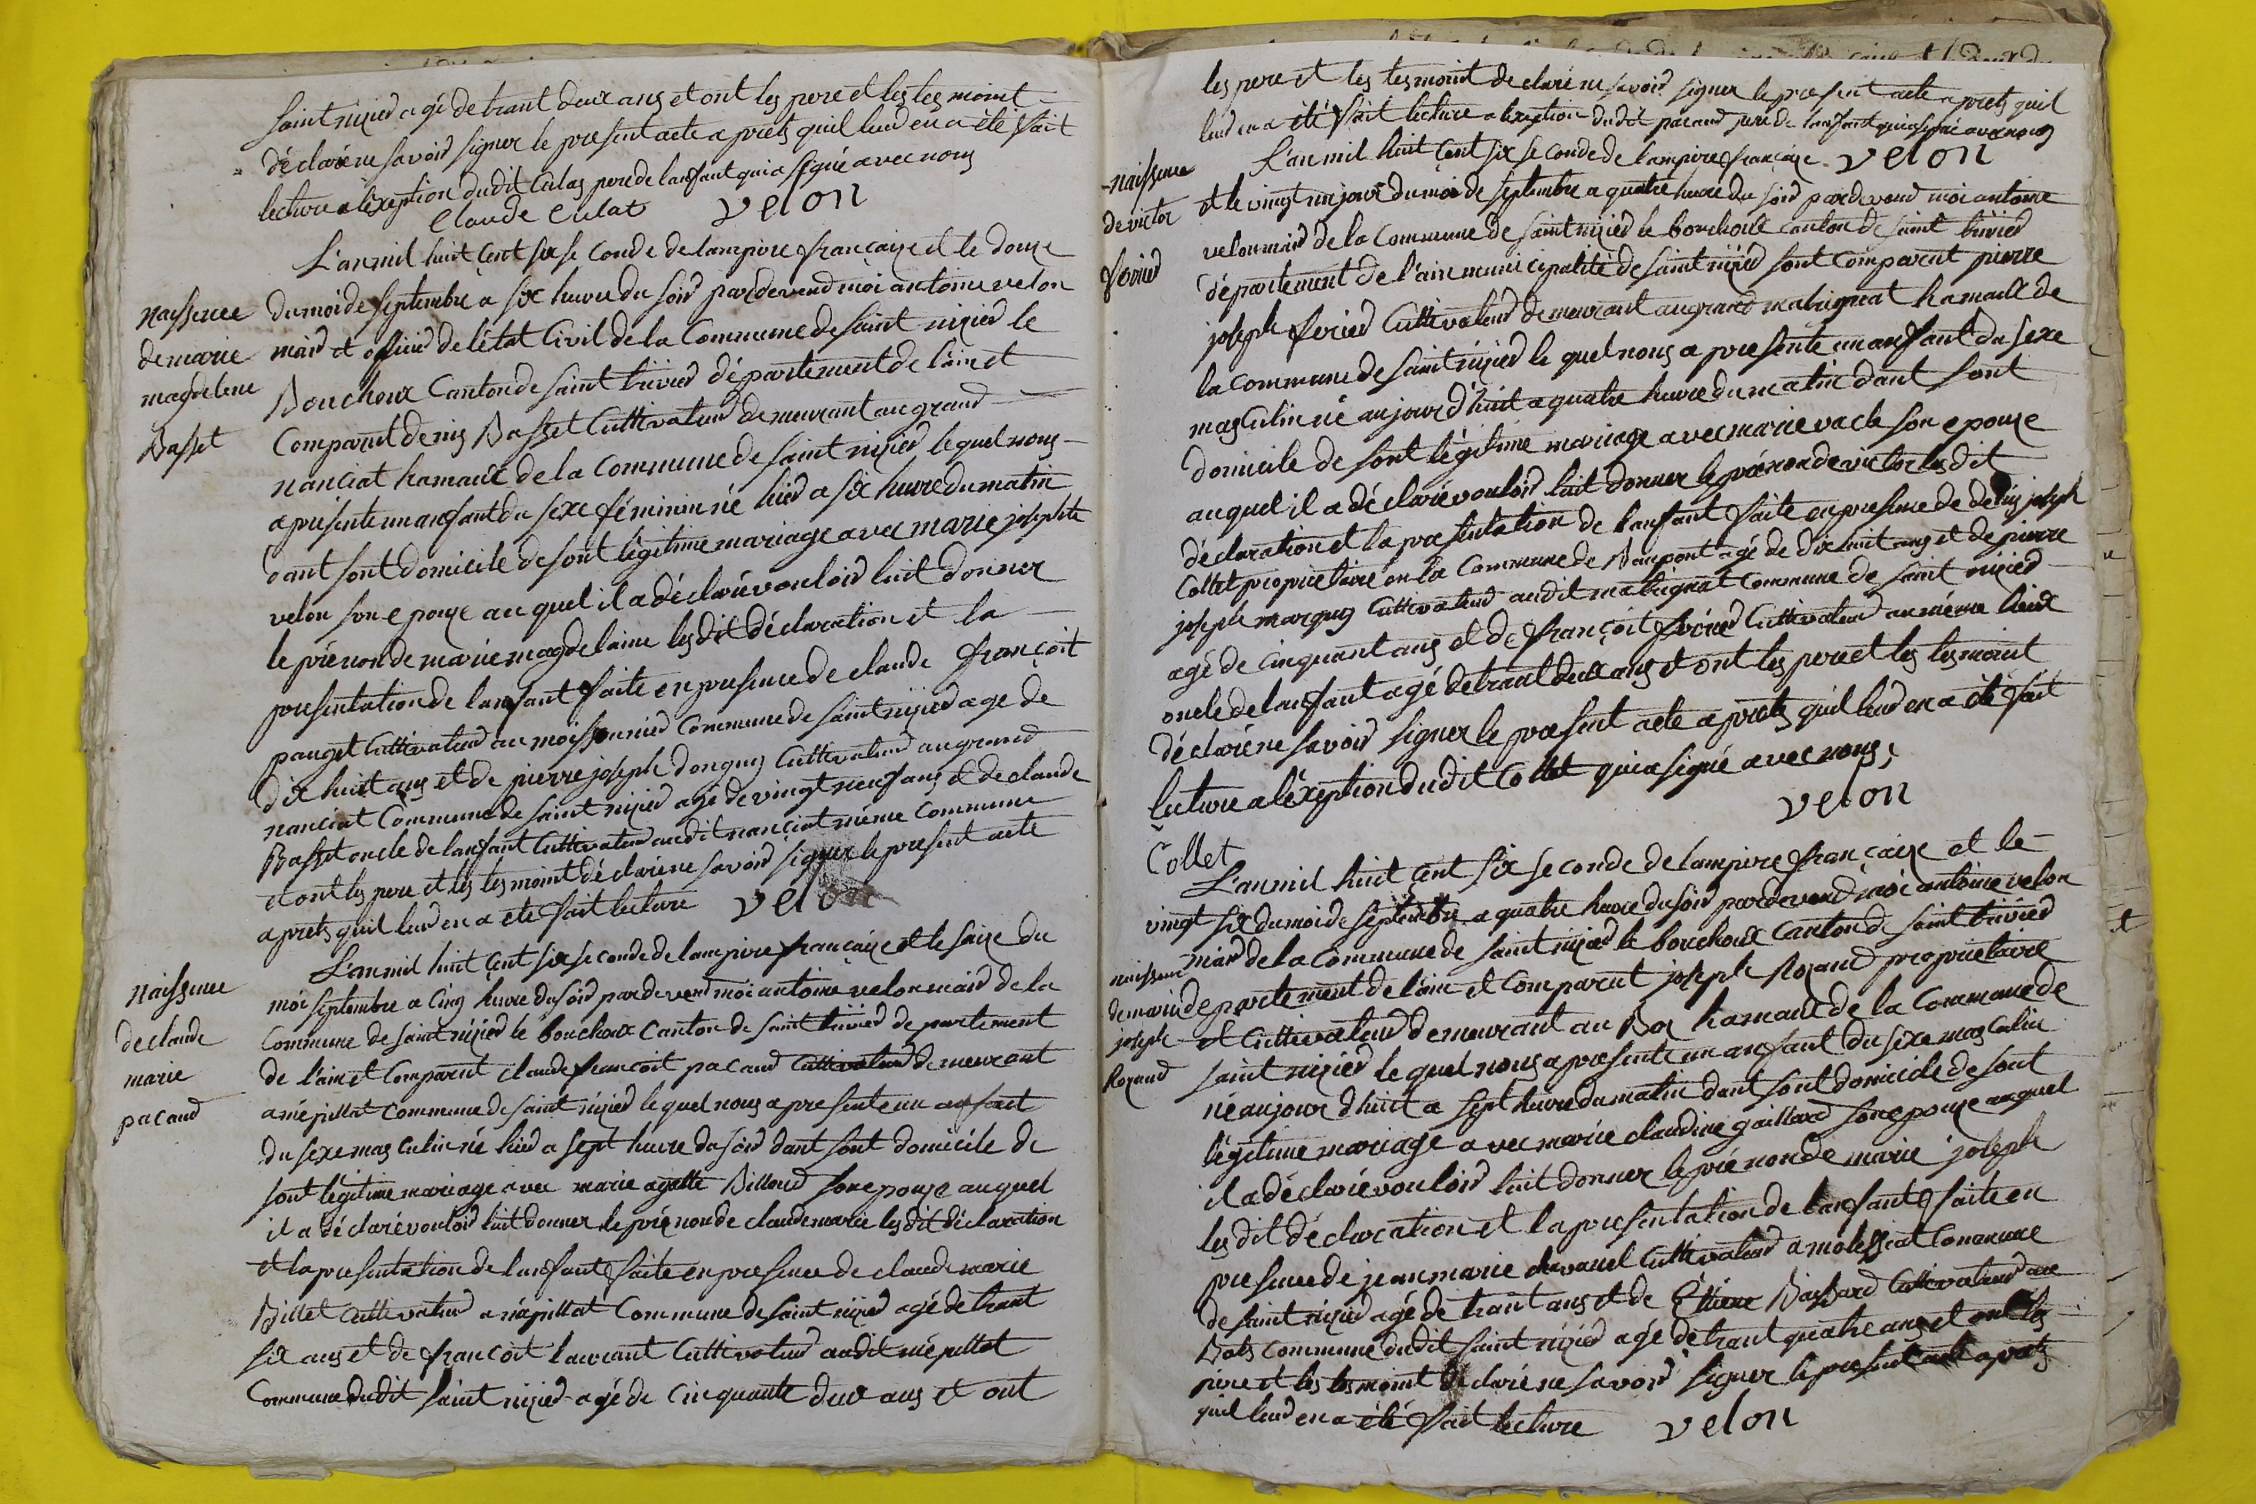 saint nizied agé de trant deux ans et ont les pere et les tes moint
déclaré ne savoir signer le present acte a prets quil leud en a été fait
lecture a léxeption dudit Culas pere de lanfant qui a signé avec nous
Claude Culat velon
L'an mil huit çent six se conde de lampire française et le douze
naissence
de marie
magdelene
Basset
du moi de septembre a six heure du soir pardevend moi antoine velon
maid et officied de létat Civil de la Commune de saint nizied le
Bouchoux Canton de saint trivied département de l'ain et
Comparut denis Basset Cultivateud demeurant au grand
nanciat hamaux de la Commune de saint nizied lequel nous
a présenté un anfant du sexe féminin né hied a six heure du matin
dant sont domicile de sont légitime mariage avec marie josephte
velon son epouze au quel il a déclaré vouloir luit donner
le prénon de marie magdelaine lesdit déclaration et la
presentation de lanfant faite en presence de claude françoit
pauget Cultivateud au moissonnied Commune de saint nizied age de
dix huit ans et de pierre joseph donguy Cultivateud au grand
nanciat Commune de saint nizied agé de vingt neuf ans et de claude
Basset oncle de lanfant Cultivateud audit nançiat même commune
et ont les pere et les tes moint déclaré ne savoir signer le present acte
a prets quil leud en a eté fait lecture velon
L'an mil huit çent six se conde de lampire française et le saize du
naissence
de claude
marie
pacaud
moi septembre a Cinq heure du soir pardevend moi antoine velon maid de la
Commune de saint nizied le bouchoux Canton de saint trivied département
de l'ain et Comparut claude françoit pacaud Cultivateud demeurant
a mépillat Commune de saint nizied lequel nous a presente un anfant
du sexe masculin né hied a sept heure du soir dant sont domicile de
sont légitime mariage avec marie agatte Billoud son epouze au quel
il a déclaré vouloir luit donner le prénon de claude marie lesdit déclaration
et la presentation de lanfant faite en presence de claude marie
Billet Cultivateud a mépillat Commune de saint nizied agé de trant
six ans et de françoit laurant Cultivateud audit mépillat
Commune dudit saint nizied agé de Cinquante deux ans et ont
les pere et les tesmoint declaré ne savoir signer le present acte a prets quil
leud en a été fait lecture a lexeption dudit pacaud pere de lanfant qui a signé avec nous
L'an mil huit çent six se conde de lampire française velon
naissence
de victor
feried
et le vingt un jour du moi de septembre a quatre heure du soir pardevend moi antoine
velon maid de la Commune de saint nizied le bouchoux canton de saint trivied
département de l'ain municipalité de saint nizied sont comparut pierre
joseph feried Cultivateud demeurant au grand matrignat hamaux de
la commune de saint nizied le quel nous a presenté un anfant du sexe
masculin né aujourd'huit a quatre heure du matin dant sont
domicile de sont légitime mariage avec marie vacle son epouze
au quel il a déclaré vouloir luit donner le prénon de victor lesdit
déclaration et la presentation de lanfant faite en presence de denis joseph
Collet proprietaire en la Commune de Baupont agé de dix huit ans et de pierre
joseph marguy Cultivateud audit matrignat Commune de saint nizied
agé de cinquant ans et de françoit feried Cultivateud au même lieux
oncle de lanfant agé de trant deux ans et ont les pere et les tes moint
déclaré ne savoir signer le present acte a prets quil leud en a été fait
lecture a léxeption dudit Collet qui a signé avec nous,
velon
Collet
L'an mil huit çent six se conde de lampire française et le
vingt six du moi de septembre a quatre heure du soir pardevend moi antoine velon
maid de la Commune de saint nizied le bouchoux Canton de saint trivied
naissence
de marie
joseph
Rozand
departement de l'ain et Comparut joseph Rozand proprietaire
et Cultivateud demeurant au Boz hamaux de la Commune de
saint nizied le quel nous a presenté un anfant du sexe masculin
né aujourd'huit a sept heure du matin dant sont domicile de sont
légitime mariage avec marie claudine gaillard son epouze au quel
il a déclaré vouloir luit donner le prénon de marie joseph
lesdit déclaration et la presentation de lanfant faite en
presence de jean marie chevauel Cultivateud a molissiat Commune
de saint nizied agé de trant ans et de Etiene Bassard Cultivateud aux
Bots commune dudit saint nizied agé de trant quatre ans et ont les
pere et les tes moint déclaré ne savoir signer le present acte a prets
quil leud en a été fait lecture velon